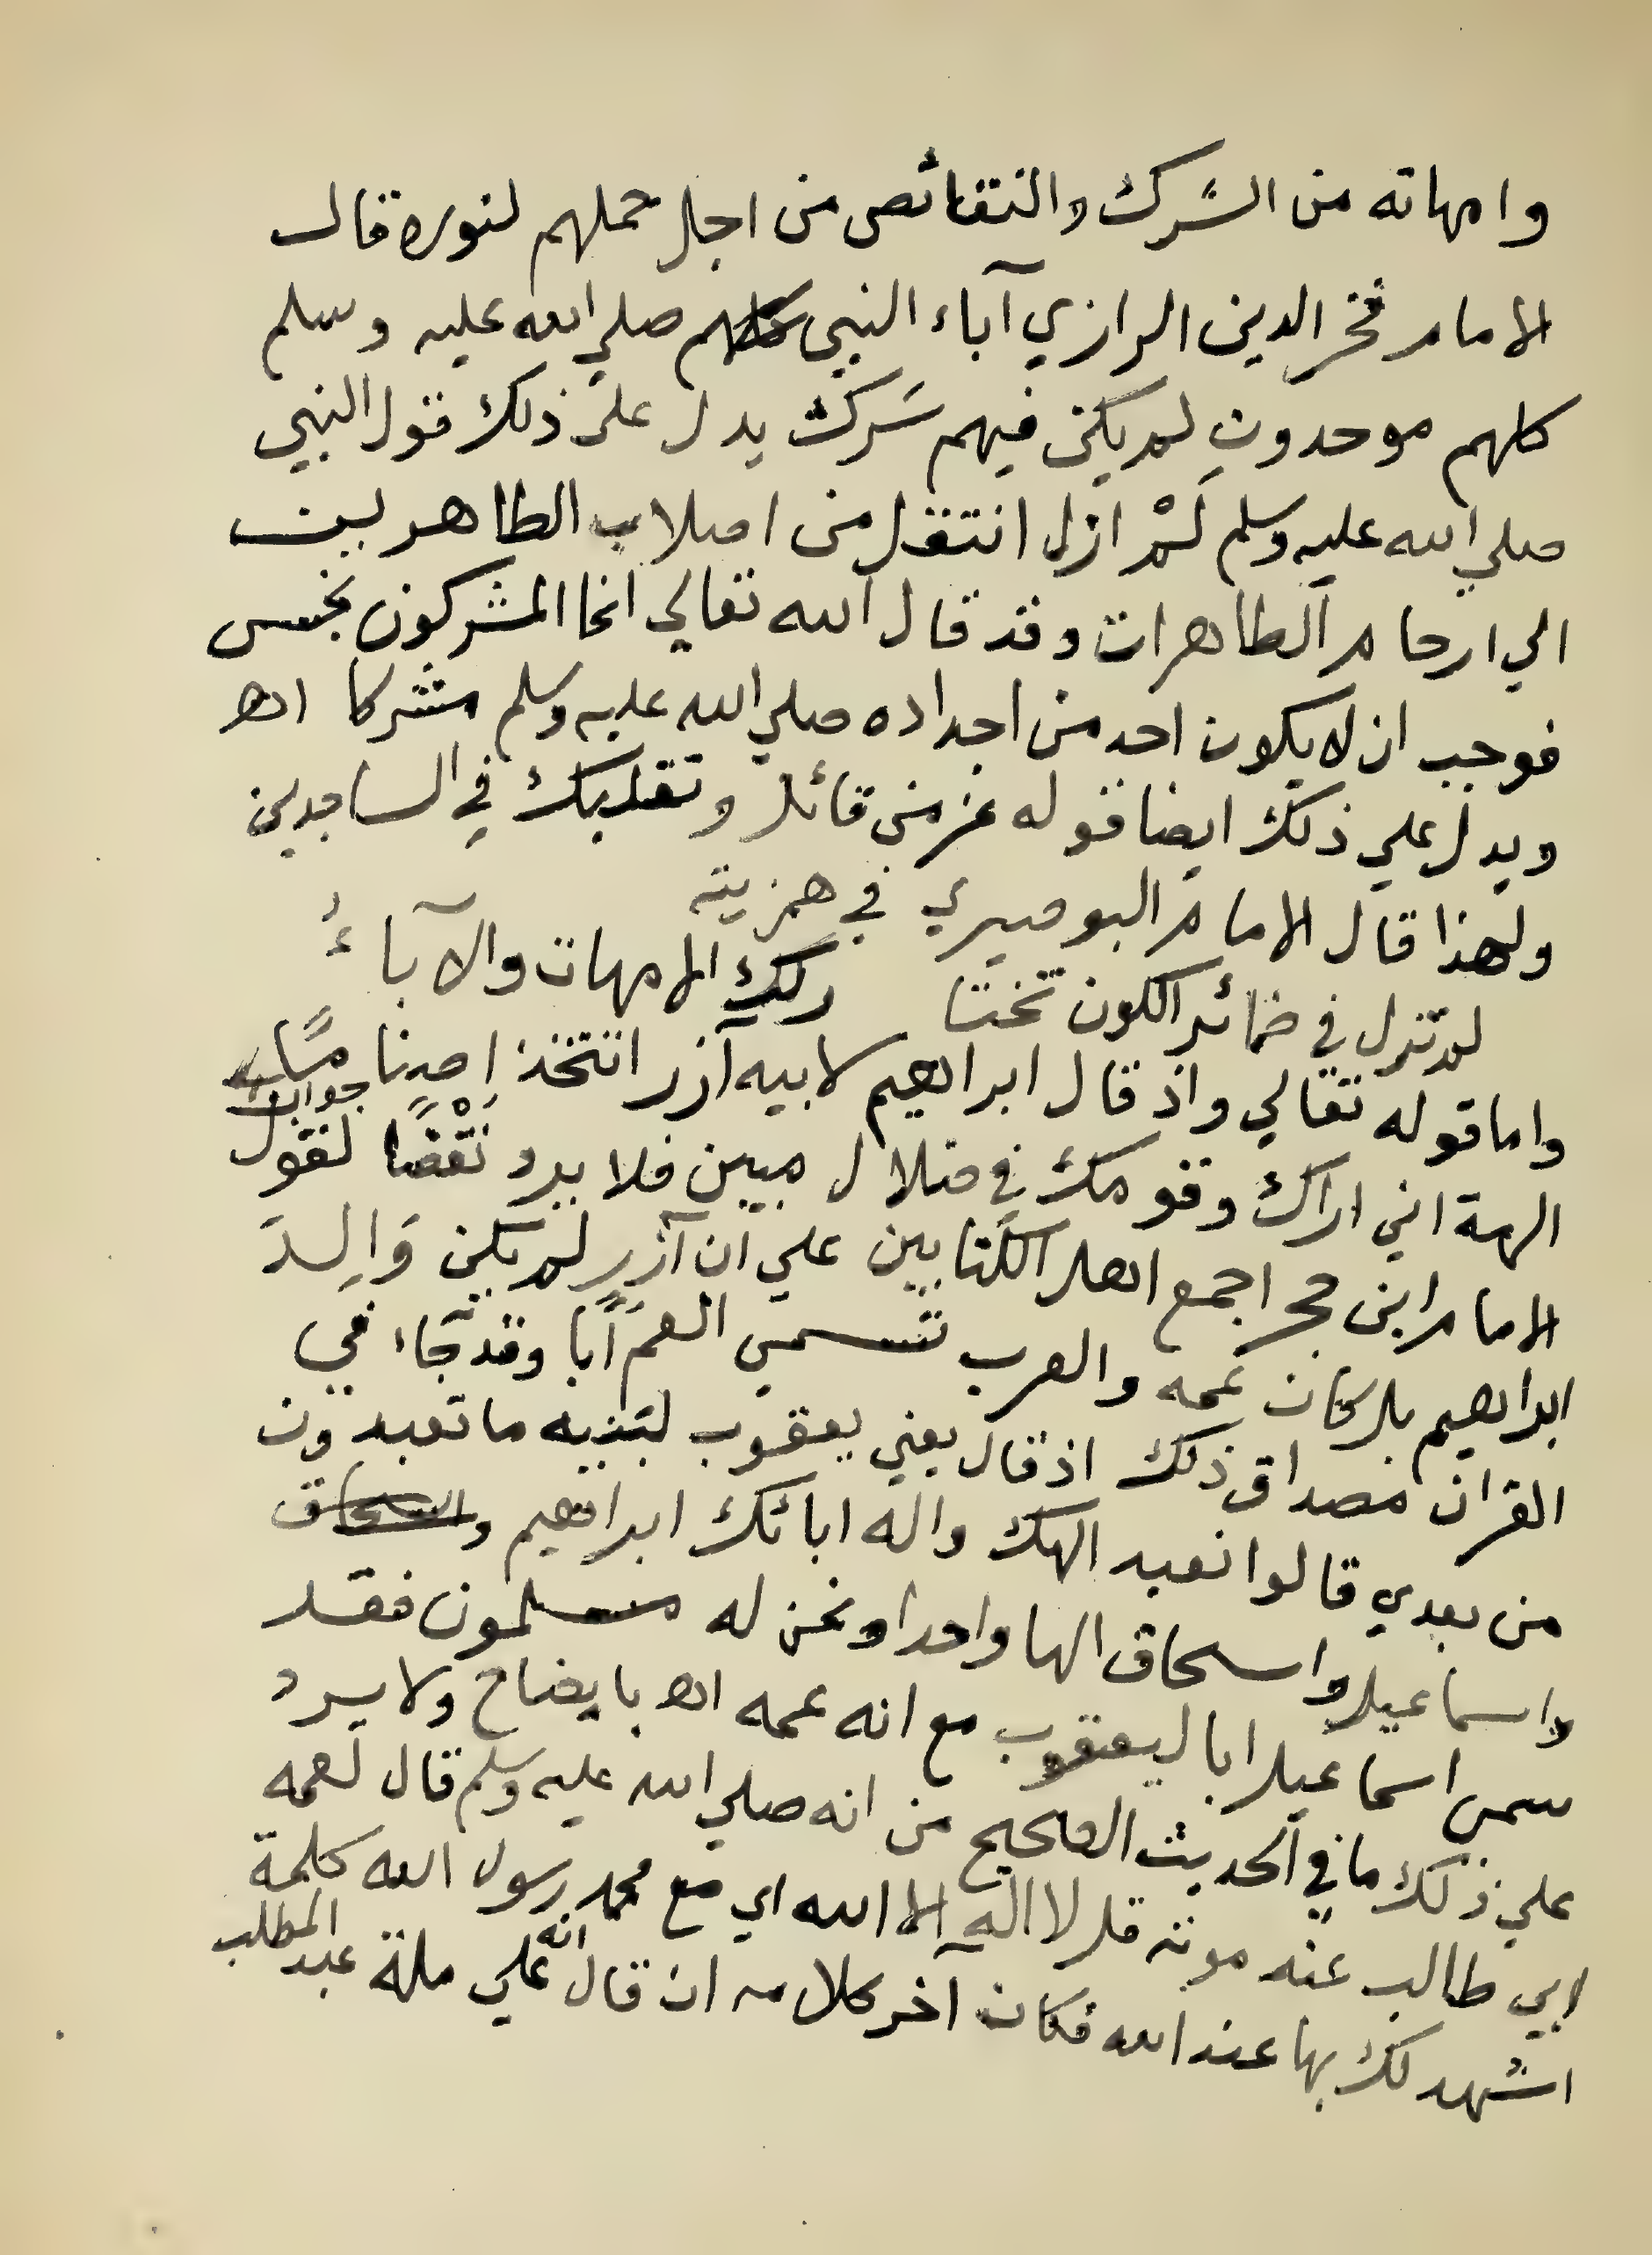 وامهاته من الشرك والنقائص من اجل حملهم لنوره قال
الامام فخر الدين الرازي آباء النبي صلي الله عليه وسلم
كلهم موحدون لم يكن فيهم شرك يدل علي ذلك قول النبي
صلي الله عليه وسلم لَمْ ازل انتقل من اصلاب الطاهرين
الي ارحام الطاهرات وقد قال الله تعالي انما المشركون نجس
فوجب ان لا يكون احد من اجداده صلي الله عليه وسلم مشركا اه
ويدل علي ذلك ايضا قوله عز من قائل وتقلبك في الساجدين
ولهذا قال الامام البوصيري في همزيته
لم تزل في ضمائر الكون تختا رلك الامهات والآباءُ
واما قوله تعالي واذ قال ابراهيم لابيه آزر اتتخذ اصناما
الهة اني اراك وقومك في ضلال مبين فلا يرد نَقْضًا لقول
الامام ابن حجر اجمع اهل الكتابين علي ان آزر لم يكن وَالِدَ
ابراهيم بل كان عمه والعرب تسمي العمَ اَبًا وقد جاء في
القران مصداق ذلك اذ قال يعني يعقوب لبنيه ما تعبدون
من بعدي قالوا نعبد الهك واله ابائك ابراهيم واسحاق
واسماعيل واسحاق الها واحدا ونحن له مسلمون فقد
سمى اسماعيل ابا ليعقوب مع انه عمه اه بايضاح ولا يرد
علي ذلك ما في الحديث الصحيح من انه صلي الله عليه وسلم قال لعمه
ابي طالب عند موته قل لا اله الا الله اي مع محمد رسول الله كلمة
اشهد لك بها عند الله فكان آخر كلامه ان قال انه علي ملة عبد المطلب